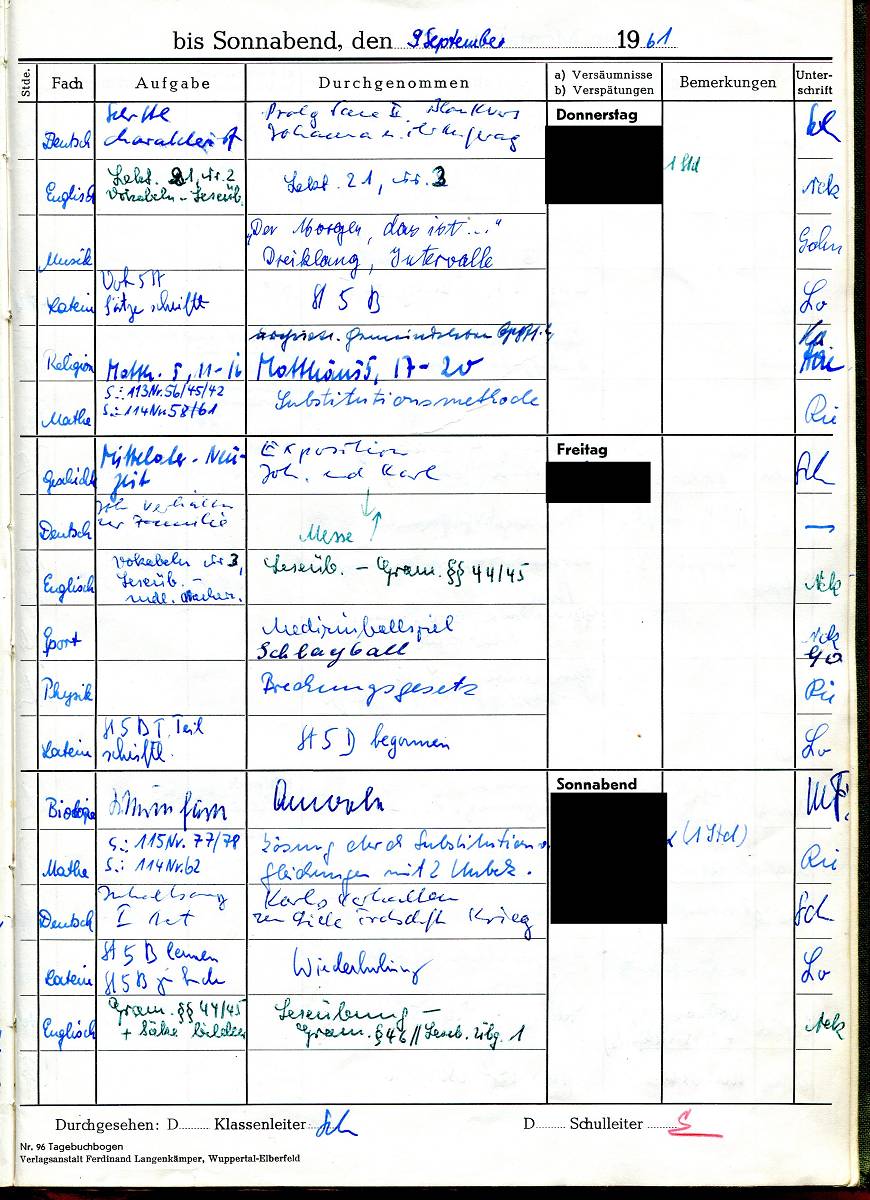 bis Sonnabend, den 9 September 1961
Stde. Fach Aufgabe Durchgenommen a) Versäumnisse b) Verspätungen Bemerkungen Unter-schrift
Donnerstag
Deutsch Sch
Johanna u. ihr Auftrag
Englisch Lekt. 21, Nr. 2 Lekt. 21, Nr. 3 1 Std Nck
Vokabeln - Leseüb.
Musik "Der Morgen, das ist..." Gohn
Dreiklang, Intervalle
Latein Vok 5A St 5 B Lo
Sätze schriftl
Religion Matth. 5, 11-16 Matthäus 5, 17-20
Mathe S.: 113 Nr. 56/45/42 Substitutionsmethode Rü
S.: 114 Nr. 58/61
Freitag
Geschichte Mittelalter - Neu- Exposition Sch
zeit Joh. und Karl
Deutsch Joh Verhältn
zur Familie Messe —
Englisch Vokabeln Nr 3, Leseüb. - Gram. §§ 44/45 Nck
Leseüb. -
Sport Medizinballspiel Nck
Schlagball Go
Physik Brechungsgesetz Rü
Latein St 5 B I. Teil St 5 D begonnen Lo
schriftl.
Sonnabend
Biologie
Mathe S.: 115 Nr. 77/78 Lösung durch Substitution v. (1 Std) Rü
S.: 114 Nr. 62 Gleichungen mit 2 Unbek.
Deutsch Inhaltsang Karls Verhalten Sch
I Akt Krieg
Latein St 5 B lernen Wiederholung Lo
St 5 B zu Ende
Englisch Gram. §§ 44/45 Leseübung - Nck
+ Sätze bilden Gram. § 46 // Leseb. Übg. 1
Durchgesehen: D......... Klassenleiter Sch D......... Schulleiter S
Nr. 96 Tagebuchbogen
Verlagsanstalt Ferdinand Langenkämper, Wuppertal-Elberfeld